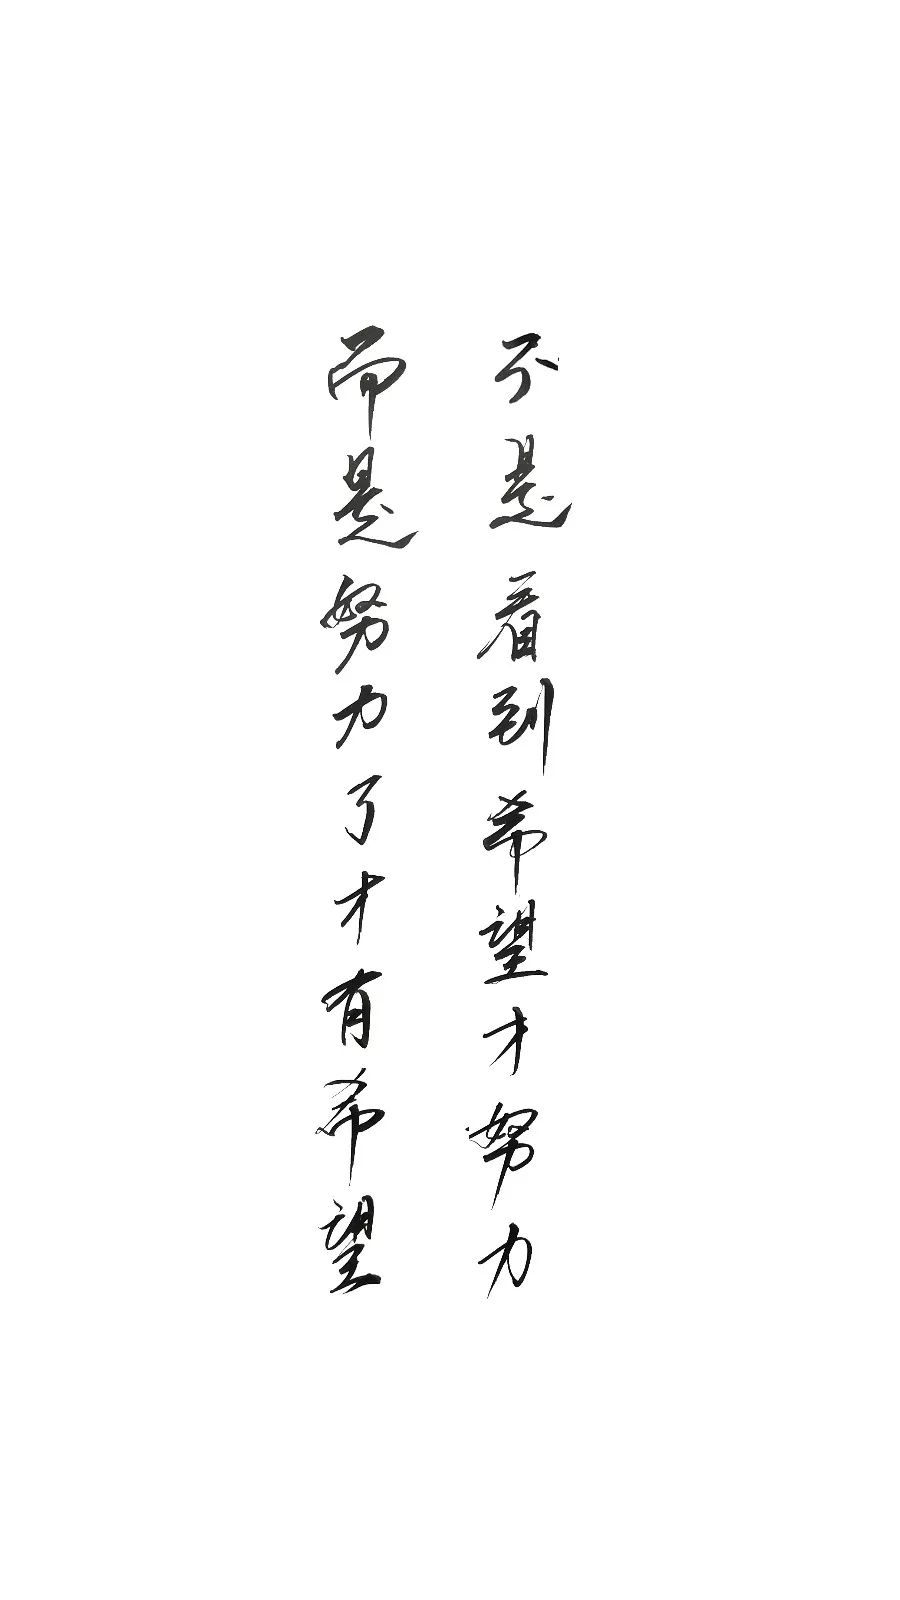 不是看到希望才努力
而是努力了才有希望